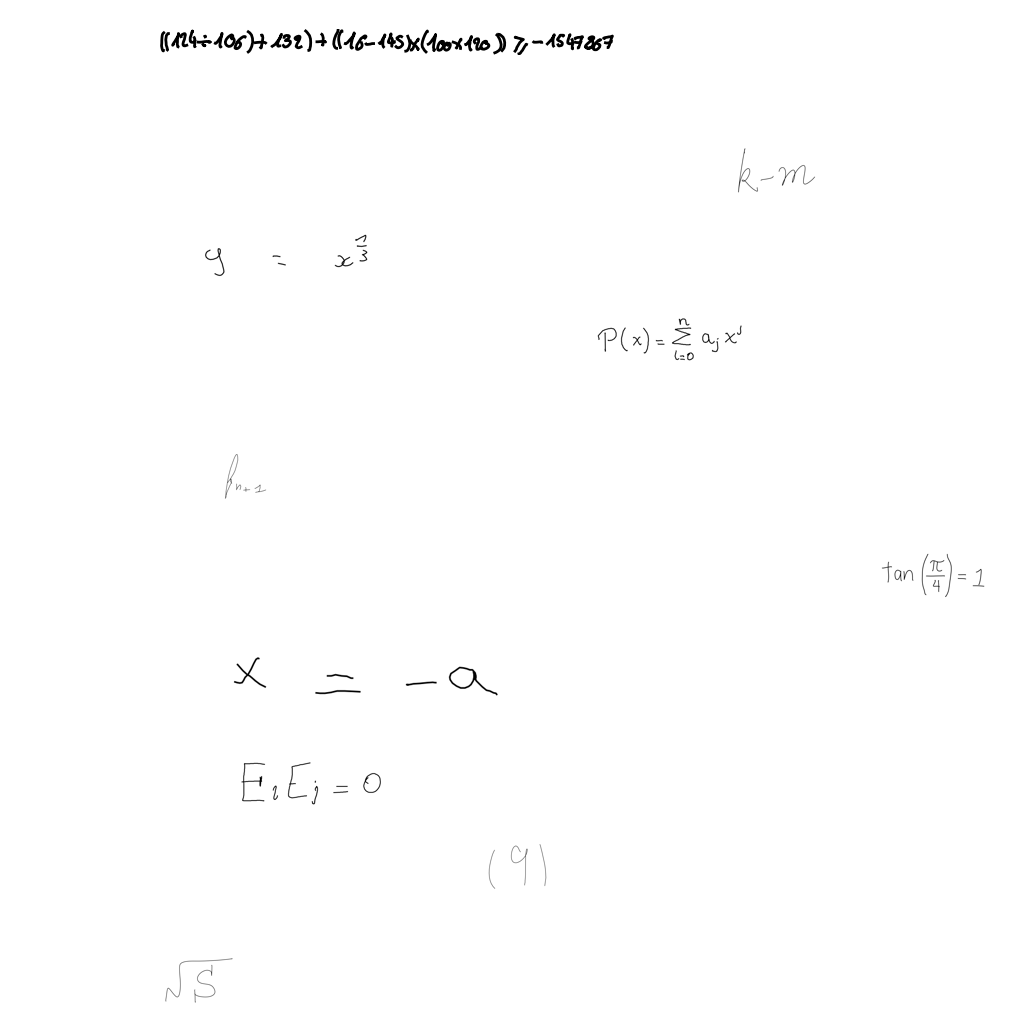 ((124÷106)+132)+((16-145)×(100×120))≥-1547867
k-m
y = x^{\frac{1}{3}}
P(x)=\sum_{i=0}^{n} a_j x^j
β_{n+1}
tan(\frac{π}{4})=1
x = -a
E_i E_j = 0
(9)
\sqrt{S}